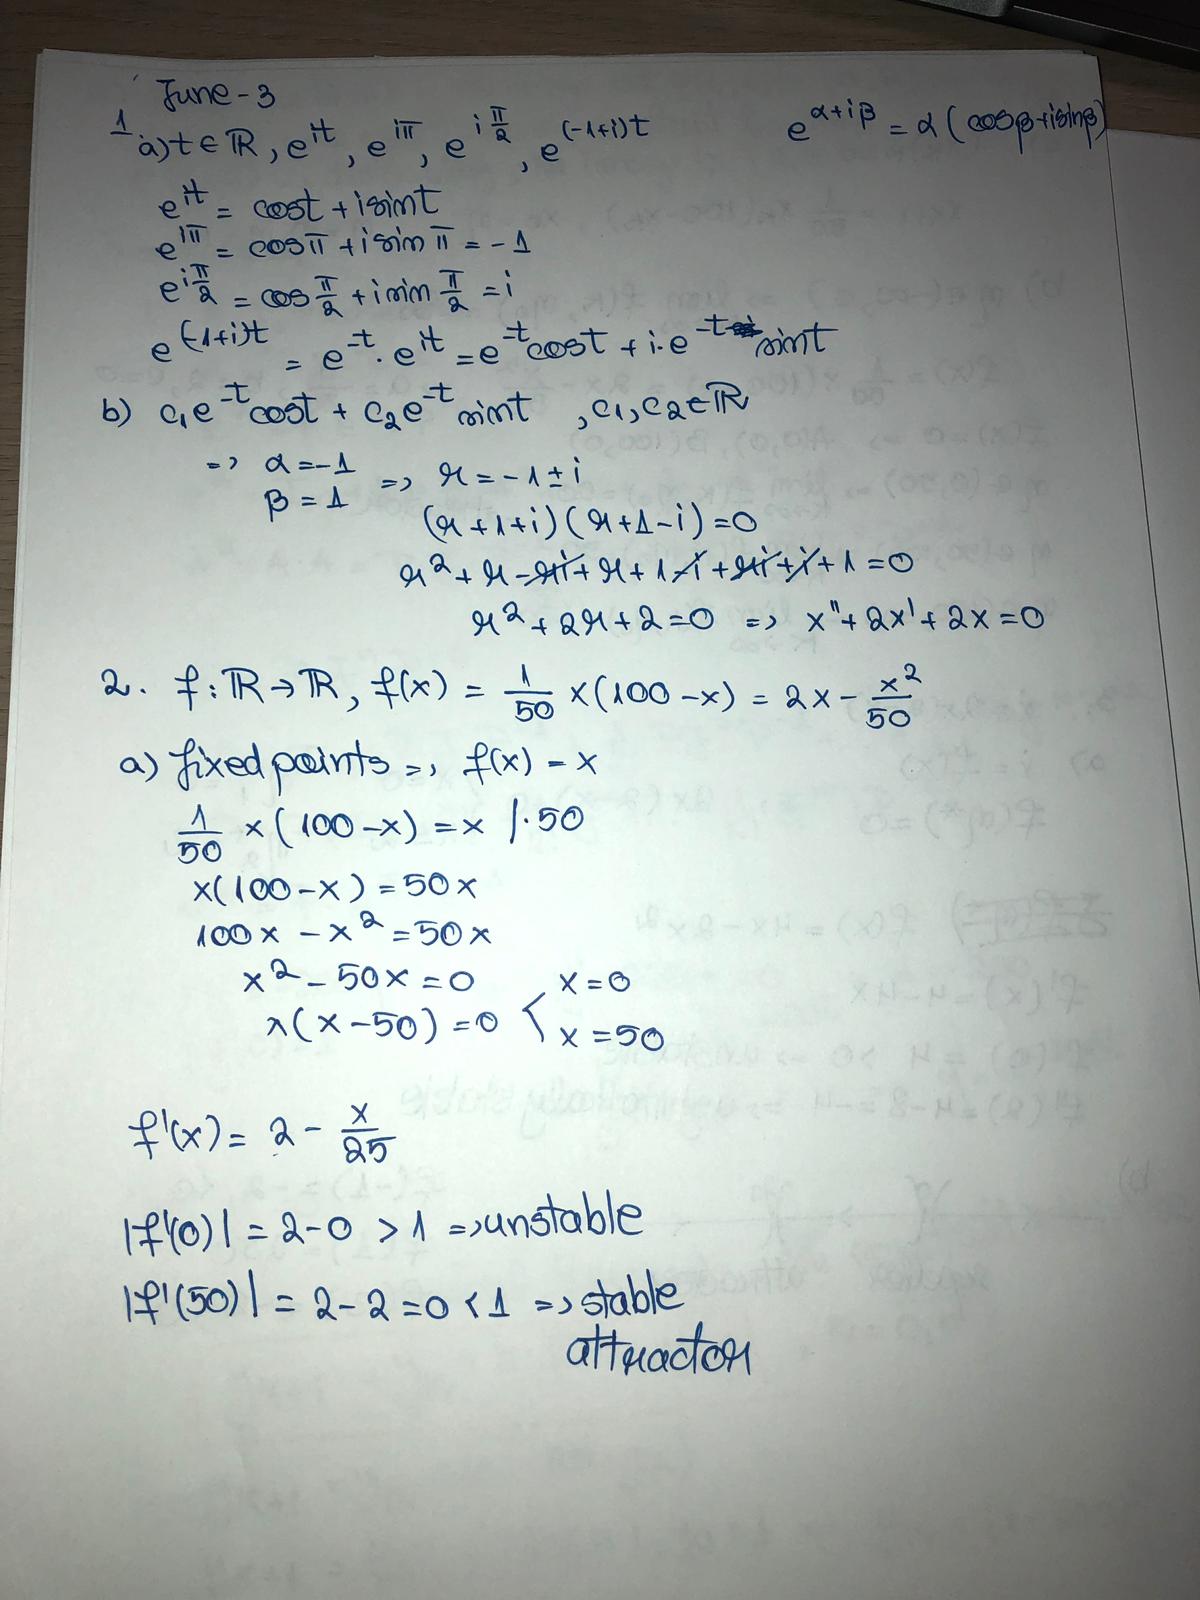 June - 3
1
a) t ∈ ℝ, e^{it}, e^{iπ}, e^{i π/2}, e^{(-1+i)t}
e^{α+iβ} = α (cosβ + isinβ)
e^{it} = cost + isint
e^{iπ} = cosπ + isinπ = -1
e^{i π/2} = cos π/2 + isin π/2 = i
e^{(-1+i)t} = e^{-t} · e^{it} = e^{-t}cost + i·e^{-t} sint
b) c₁e^{-t}cost + c₂e^{-t}sint , c₁, c₂ ∈ ℝ
=> α = -1
β = 1
=> r = -1 ± i
(r+1+i)(r+1-i) = 0
r² + r - ri + r + 1 - i + ri + i + 1 = 0
r² + 2r + 2 = 0 => x'' + 2x' + 2x = 0
2. f: ℝ → ℝ, f(x) = 1/50 x(100-x) = 2x - x²/50
a) fixed points => f(x) = x
1/50 x(100-x) = x /·50
x(100-x) = 50x
100x - x² = 50x
x² - 50x = 0
x(x-50) = 0 < x = 0
x = 50
f'(x) = 2 - x/25
|f'(0)| = 2-0 > 1 => unstable
|f'(50)| = 2-2 = 0 < 1 => stable
attractor